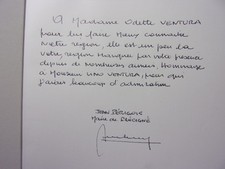 A Madame Odette VENTURA
pour lui faire mieux connaître
notre région, elle est un peu la
votre région puisque par votre présence
depuis de nombreuses années. Hommage
à Monsieur LINO VENTURA, pour qui
j'avais beaucoup d'admiration
JEAN
Maire de